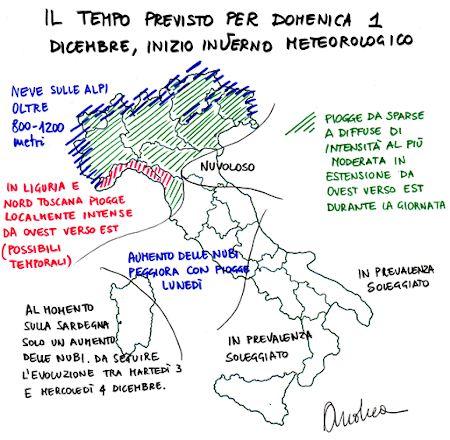 IL TEMPO PREVISTO PER DOMENICA 1
DICEMBRE, INIZIO INVERNO METEOROLOGICO
NEVE SULLE ALPI
OLTRE
800-1200
metri
PIOGGE DA SPARSE
A DIFFUSE DI
INTENSITÀ AL PIÙ
MODERATA IN
ESTENSIONE DA
OVEST VERSO EST
DURANTE LA GIORNATA
NUVOLOSO
IN LIGURIA E
NORD TOSCANA PIOGGE
LOCALMENTE INTENSE
DA OVEST VERSO EST
(POSSIBILI
TEMPORALI)
AUMENTO DELLE NUBI
PEGGIORA CON PIOGGE
LUNEDÌ
IN PREVALENZA
SOLEGGIATO
AL MOMENTO
SULLA SARDEGNA
SOLO UN AUMENTO
DELLE NUBI. DA SEGUIRE
L'EVOLUZIONE TRA MARTEDÌ 3
E MERCOLEDÌ 4 DICEMBRE.
IN PREVALENZA
SOLEGGIATO
Andrea